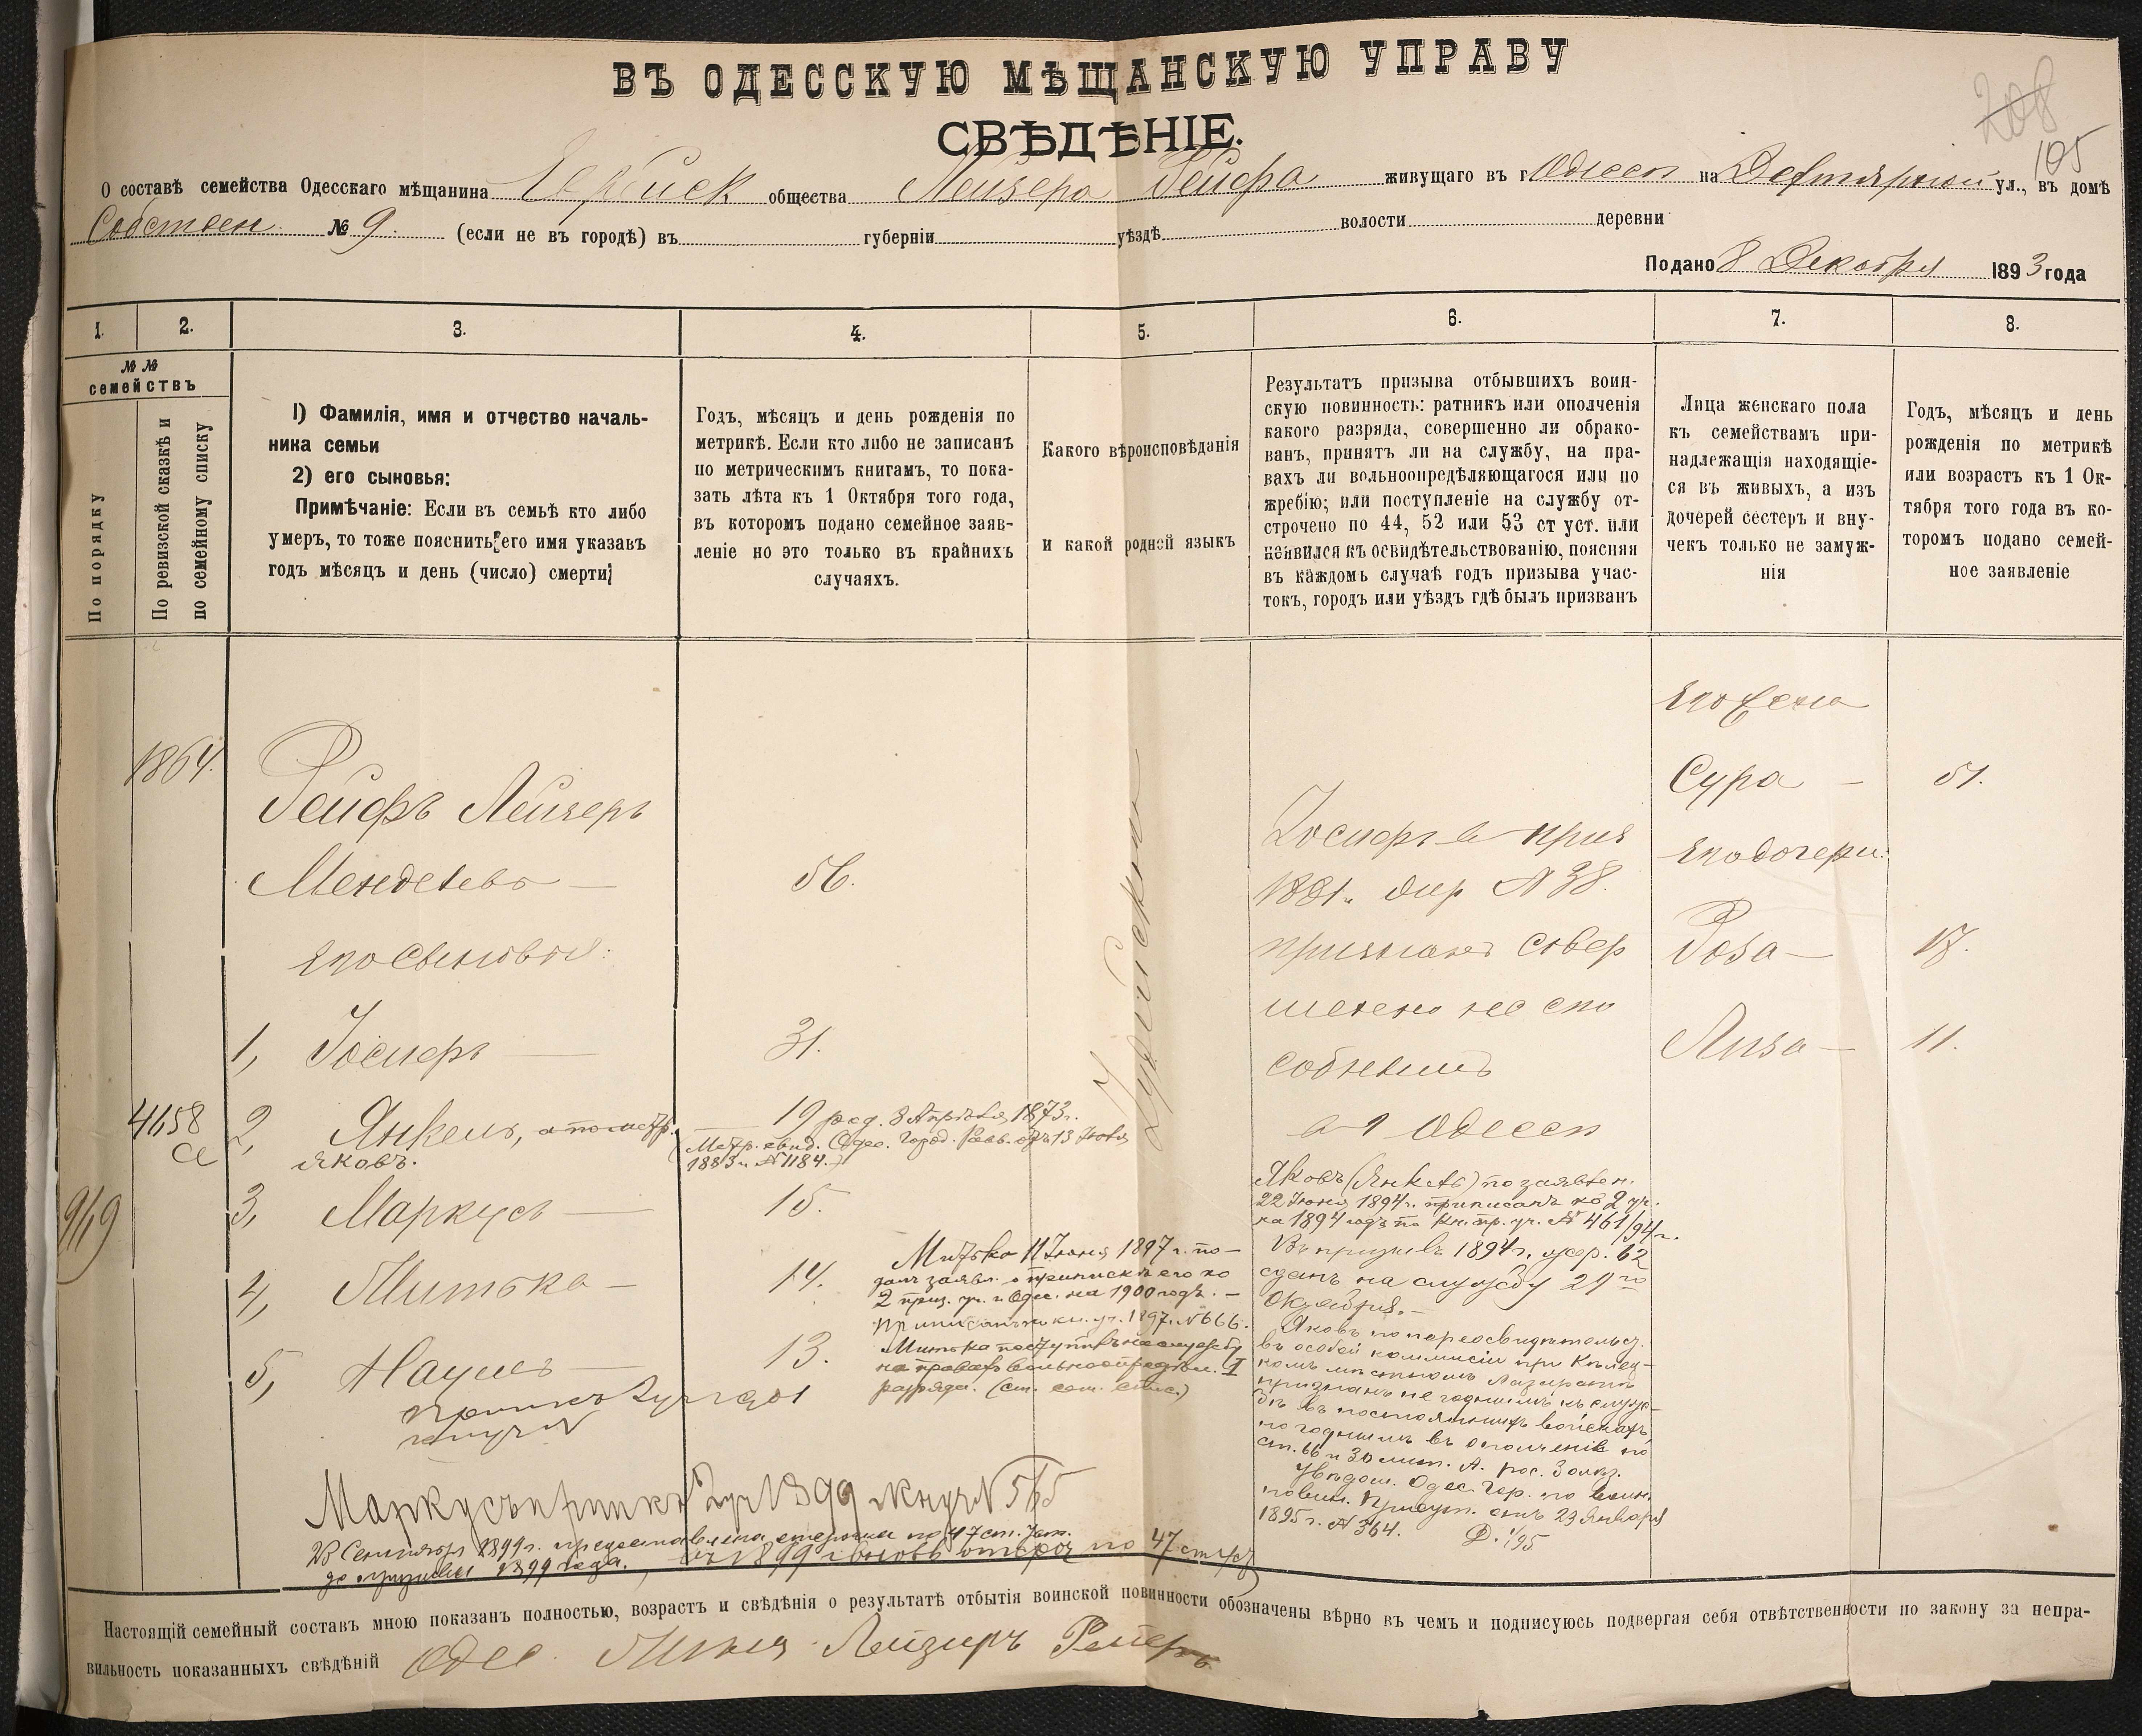 ВЪ ОДЕССКУЮ МѢЩАНСКУЮ УПРАВУ
СВѢДѢНІЕ.
208
105
О составѣ семейства Одесскаго мѣщанина Еврейск общества Лейзера Рейфа живущаго въ г Одессѣ на Дегтярной ул., въ домѣ
Собствен. № 9. (если не въ городѣ) въ губерніи уѣздѣ волости деревни
Подано 8 Декабря 1893 года
1. 2. 3. 4. 5. 6. 7. 8.
№ №
семействъ
По порядку
По ревизской сказкѣ и
по семейному списку
1) Фамилія, имя и отчество началь-
ника семьи
2) его сыновья:
Примѣчаніе: Если въ семьѣ кто либо
умеръ, то тоже пояснить его имя указавъ
годъ мѣсяцъ и день (число) смерти
Годъ, мѣсяцъ и день рожденія по
метрикѣ. Если кто либо не записанъ
по метрическимъ книгамъ, то пока-
зать лѣта къ 1 Октября того года,
въ которомъ подано семейное заяв-
леніе но это только въ крайнихъ
случаяхъ.
Какого вѣроисповѣданія
и какой родной языкъ
Результатъ призыва отбывшихъ воин-
скую повинность: ратникъ или ополченія
какого разряда, совершенно ли обрако-
ванъ, принятъ ли на службу, на пра-
вахъ ли вольноопредѣляющагося или по
жребію; или поступленіе на службу от-
строчено по 44, 52 или 53 ст уст. или
неявился къ освидѣтельствованію, поясняя
въ каждомъ случаѣ годъ призыва учас-
токъ, городъ или уѣздъ гдѣ былъ призванъ
Лица женскаго пола
къ семействамъ при-
надлежащія находящіе-
ся въ живыхъ, а изъ
дочерей сестеръ и вну-
чекъ только не замуж-
нія
Годъ, мѣсяцъ и день
рожденія по метрикѣ
или возрастъ къ 1 Ок-
тября того года въ ко-
торомъ подано семей-
ное заявленіе
1864.
Рейфъ Лейзеръ
Менделевъ — 56.
его сыновья:
1, Іосифъ — 31.
4158
2, Янкель, а по метр. — 19 род. 8 Апрѣля 1873 г.
Яковъ.
(Метр. свид. Одес. Город. Равв. отъ 13 Іюня
1883 г. № 1184.)
949
3, Маркусъ — 15.
4, Митька — 14.
5, Наумъ — 13.
Митька 11 Іюня 1897 г. по-
далъ заявл. о припискѣ его ко
2 приз. уч. г. Одес. на 1900 годъ. —
Приписанъ по кн. уч. 1897. № 666.
Митька поступилъ на службу
на правахъ вольноопредѣл. I
разряда.
Маркусъ припис 2 уч 1899 № 565
23 Сентября 1899 г. предоставлена отсрочка по 47 ст. Уст.
до призыва 1899 года.
1899 г вновь отсроч по 47 ст Уст
Іудейское
Іосифъ в приз
1881 г. жер № 38.
признанъ совер
шенно не спо
собнымъ
в г Одессѣ
Яковъ (Янкель) по заявлен.
22 Іюня 1894 г. приписанъ ко 2 уч.
на 1894 годъ по кн. пр. уч. № 461/94 г.
Въ призывъ 1894 г. жер. 62
сданъ на службу 29 го
Октября. —
Яковъ по переосвидѣтельст.
въ особой коммисіи при Кѣлец-
комъ мѣстномъ Лазаретѣ
признанъ не годнымъ къ служ-
бѣ въ постоянныхъ войскахъ,
но годнымъ въ ополченіе по
ст. 66 и 30 лит. А. рос. Болѣз.
Увѣдом. Одес. Гор. по воин.
повин. Присут. отъ 23 Января
1895 г. № 364. Д. 1/95
Его жена
Сура — 51.
Его дочери:
Роза — 17.
Лиза — 11.
Настоящій семейный составъ мною показанъ полностью, возрастъ и свѣдѣнія о результатѣ отбытія воинской повинности обозначены вѣрно въ чемъ и подписуюсь подвергая себя отвѣтственности по закону за непра-
вильность показанныхъ свѣдѣній Одес. Лейзеръ Рейфъ